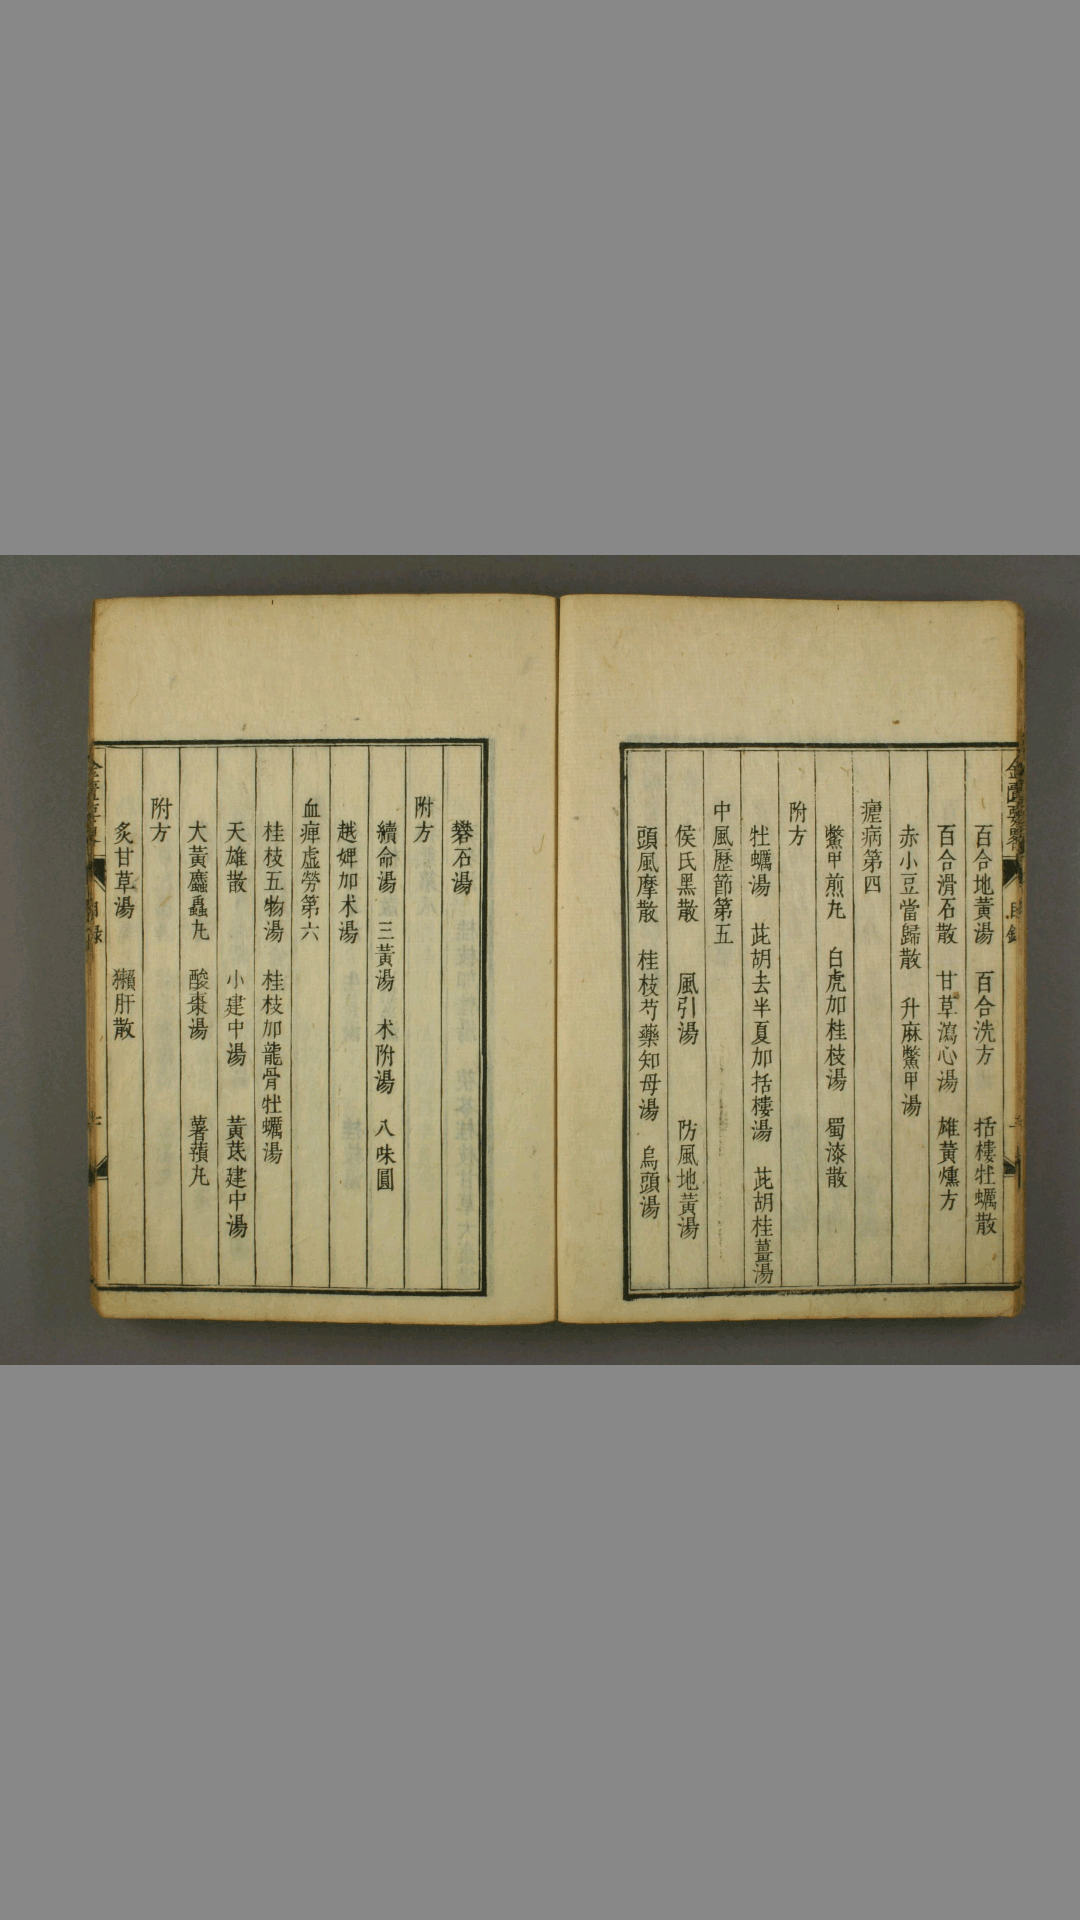 百合地黃湯　百合洗方　括樓牡蠣散
百合滑石散　甘草瀉心湯　雄黃熏方
赤小豆當歸散　升麻鱉甲湯
瘧病第四
鱉甲煎九　白虎加桂枝湯　蜀漆散
附方
牡蠣湯　茈胡去半夏加括樓湯　茈胡桂薑湯
中風歷節第五
侯氏黑散　風引湯　防風地黃湯
頭風摩散　桂枝芍藥知母湯　烏頭湯
礬石湯
附方
續命湯　三黃湯　术附湯　八味圓
越婢加术湯
血痺虛勞第六
桂枝五物湯　桂枝加龍骨牡蠣湯
天雄散　小建中湯　黃芪建中湯
大黃䗪蟲九　酸棗湯　薯蕷九
附方
炙甘草湯　獺肝散